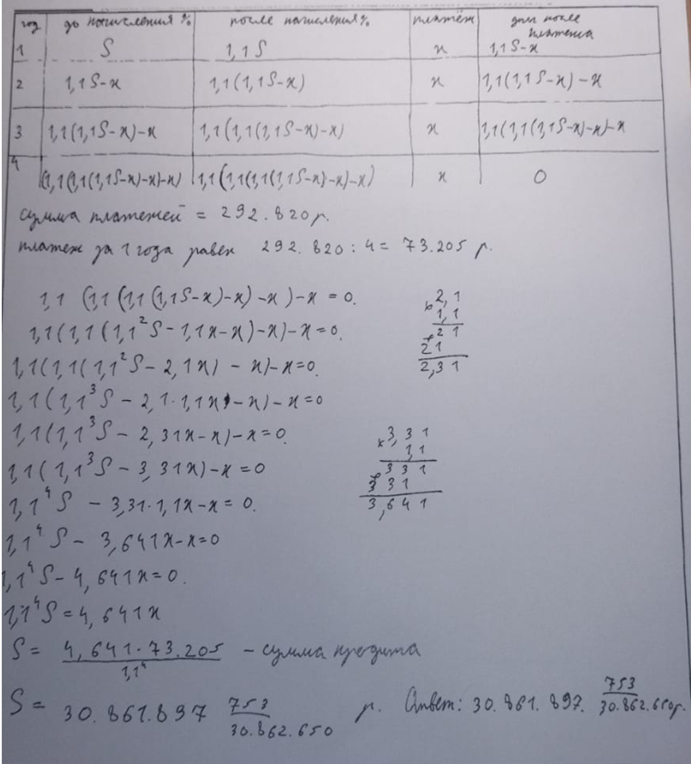 год до начисления % после начисления % платёж долг после платежа
1 S 1,1S x 1,1S-x
2 1,1S-x 1,1(1,1S-x) x 1,1(1,1S-x)-x
3 1,1(1,1S-x)-x 1,1(1,1(1,1S-x)-x) x 1,1(1,1(1,1S-x)-x)-x
4 (1,1(1,1(1,1S-x)-x)-x) 1,1(1,1(1,1(1,1S-x)-x)-x) x 0
сумма платежей = 292.820 р.
платеж за 1 года равен 292.820 : 4 = 73.205 р.
1,1 (1,1(1,1(1,1S-x)-x)-x)-x=0.
1,1(1,1(1,1²S-1,1x-x)-x)-x=0.
1,1(1,1(1,1²S-2,1x)-x)-x=0.
1,1(1,1³S-2,1·1,1x)-x)-x=0
1,1(1,1³S-2,31x-x)-x=0.
1,1(1,1³S-3,31x)-x=0
1,1⁴S-3,31·1,1x-x=0.
1,1⁴S-3,641x-x=0
1,1⁴S-4,641x=0.
1,1⁴S=4,641x
S= 4,641·73.205 / 1,1⁴ - сумма кредита
S= 30.861.897 753/30.862.650 р. Ответ: 30.861.897. 753/30.862.650р.
2,1
x 1,1
21
+21
2,31
3,31
x 1,1
331
+331
3,641